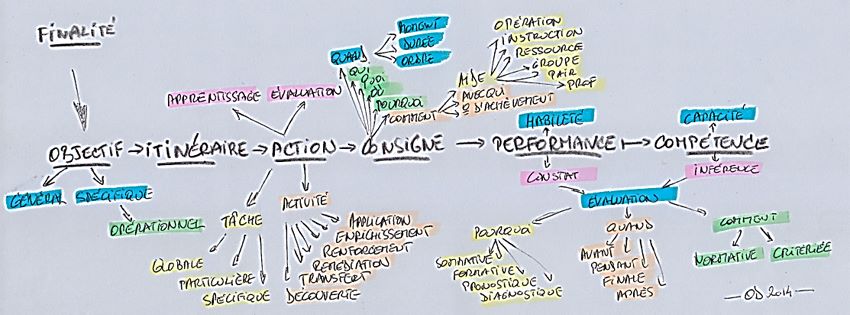 FINALITÉ
OBJECTIF → ITINÉRAIRE → ACTION → CONSIGNE → PERFORMANCE → COMPÉTENCE
GÉNÉRAL SPÉCIFIQUE
OPÉRATIONNEL
APPRENTISSAGE EVALUATION
TÂCHE
GLOBALE
PARTICULIÈRE
SPÉCIFIQUE
ACTIVITÉ
APPLICATION
ENRICHISSEMENT
RENFORCEMENT
REMEDIATION
TRANSFERT
DÉCOUVERTE
QUAND
MOMENT
DURÉE
ORDRE
QUI
QUOI
OÙ
POURQUOI
COMMENT
AIDE
AVEC QUI
D'ACHÈVEMENT
OPÉRATION
INSTRUCTION
RESSOURCE
GROUPE
PAIR
PROF
HABILETÉ
CAPACITÉ
CONSTAT
INFÉRENCE
ÉVALUATION
POURQUOI
SOMMATIVE
FORMATIVE
PRONOSTIQUE
DIAGNOSTIQUE
QUAND
AVANT
PENDANT
FINALE
APRÈS
COMMENT
NORMATIVE CRITERIÉE
— OD 2014 —